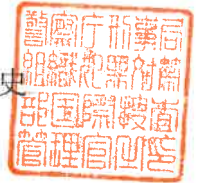 史
警察庁刑事局
組織犯罪対策
部国際捜査
管理官之印